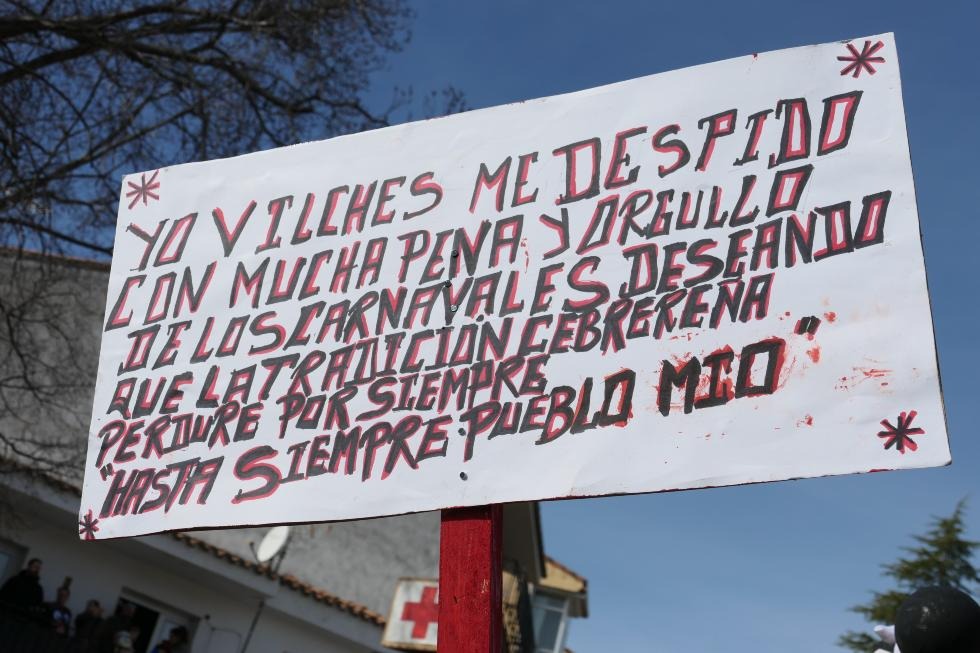 YO VILCHES ME DESPIDO
CON MUCHA PENA Y ORGULLO
DE LOS CARNAVALES DESEANDO
QUE LA TRADICIÓN CEBREREÑA
PERDURE POR SIEMPRE
"HASTA SIEMPRE PUEBLO MIO"